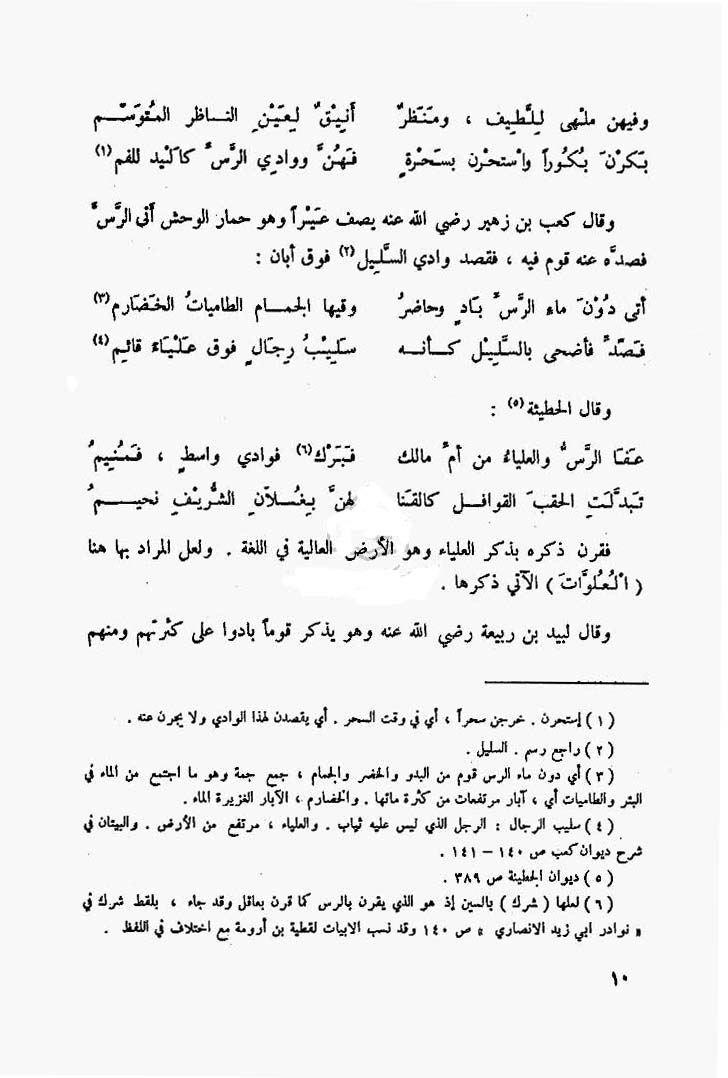 وفيهن ملْهى لِلَّطِيف ، ومَنَنظرٌ أَنِيْقٌ لِعَيْنِ النـاظر المُتَوَسّم
بَكرْنَ بُكُوراً واسْتحرْن بسَحْرةٍ فَهُنَّ ووادِي الرَّسِّ كاليْد للفم (١)
وقال كعب بن زهير رضي الله عنه يصف عَيْراً وهو حمار الوحش أتى الرَّسَّ
فصدَّه عنه قوم فيه ، فقصد وادي السَّلِيل (٢) فوق أبان :
أتى دُوْنَ ماءِ الرَّسِّ بَادٍ وحاضرُ وفيها الجمـام الطامياتُ الخَضَارم (٣)
فَصَدَّ فأضحى بالسَّلِيْل كـأنـه سَلِيْبُ رِجالٍ فوق عَلْيَاءَ قائم (٤)
وقال الحطيئة (٥) :
عَفَا الرَّسُّ والعلياءُ من أمِّ مالك فَبَرْك (٦) فوادي واسطٍ ، فَمُنِيمُ
تبدَّلَتِ الحقبَ القوافـل كالقَنا لهنَّ بِغُـلاّنِ الشُّرَيْفِ نحيـمُ
فقرن ذكره بذكر العلياء وهو الأرض العالية في اللغة . ولعل المراد بها هنا
( الْعُلوَّات ) الآتي ذكرها .
وقال لبيد بن ربيعة رضي الله عنه وهو يذكر قوماً بادوا على كثرتهم ومنهم
( ١ ) إستحرن . خرجن سحراً ، أي في وقت السحر . أي يقصدن لهذا الوادي ولا يجرن عنه .
( ٢ ) راجع رسم . السليل .
( ٣ ) أي دون ماء الرس قوم من البدو والحضر والجمام ، جمع جمة وهو ما اجتمع من الماء في
البئر والطاميات أي ، آبار مرتفعات من كثرة مائها . والخضارم ، الآبار الغزيرة الماء .
( ٤ ) سليب الرجال : الرجل الذي ليس عليه ثياب . والعلياء ، مرتفع من الأرض . والبيتان في
شرح ديوان كعب ص ١٤٠ – ١٤١ .
( ٥ ) ديوان الحطيئة ص ٣٨٩ .
( ٦ ) لعلها ( شرك ) بالسين إذ هو الذي يقرن بالرس كما قرن بعاقل وقد جاء ، بلفظ شرك في
« نوادر ابي زيد الانصاري » ص ١٤٠ وقد نسب الابيات لقطية بن أرومة مع اختلاف في اللفظ .
١٠